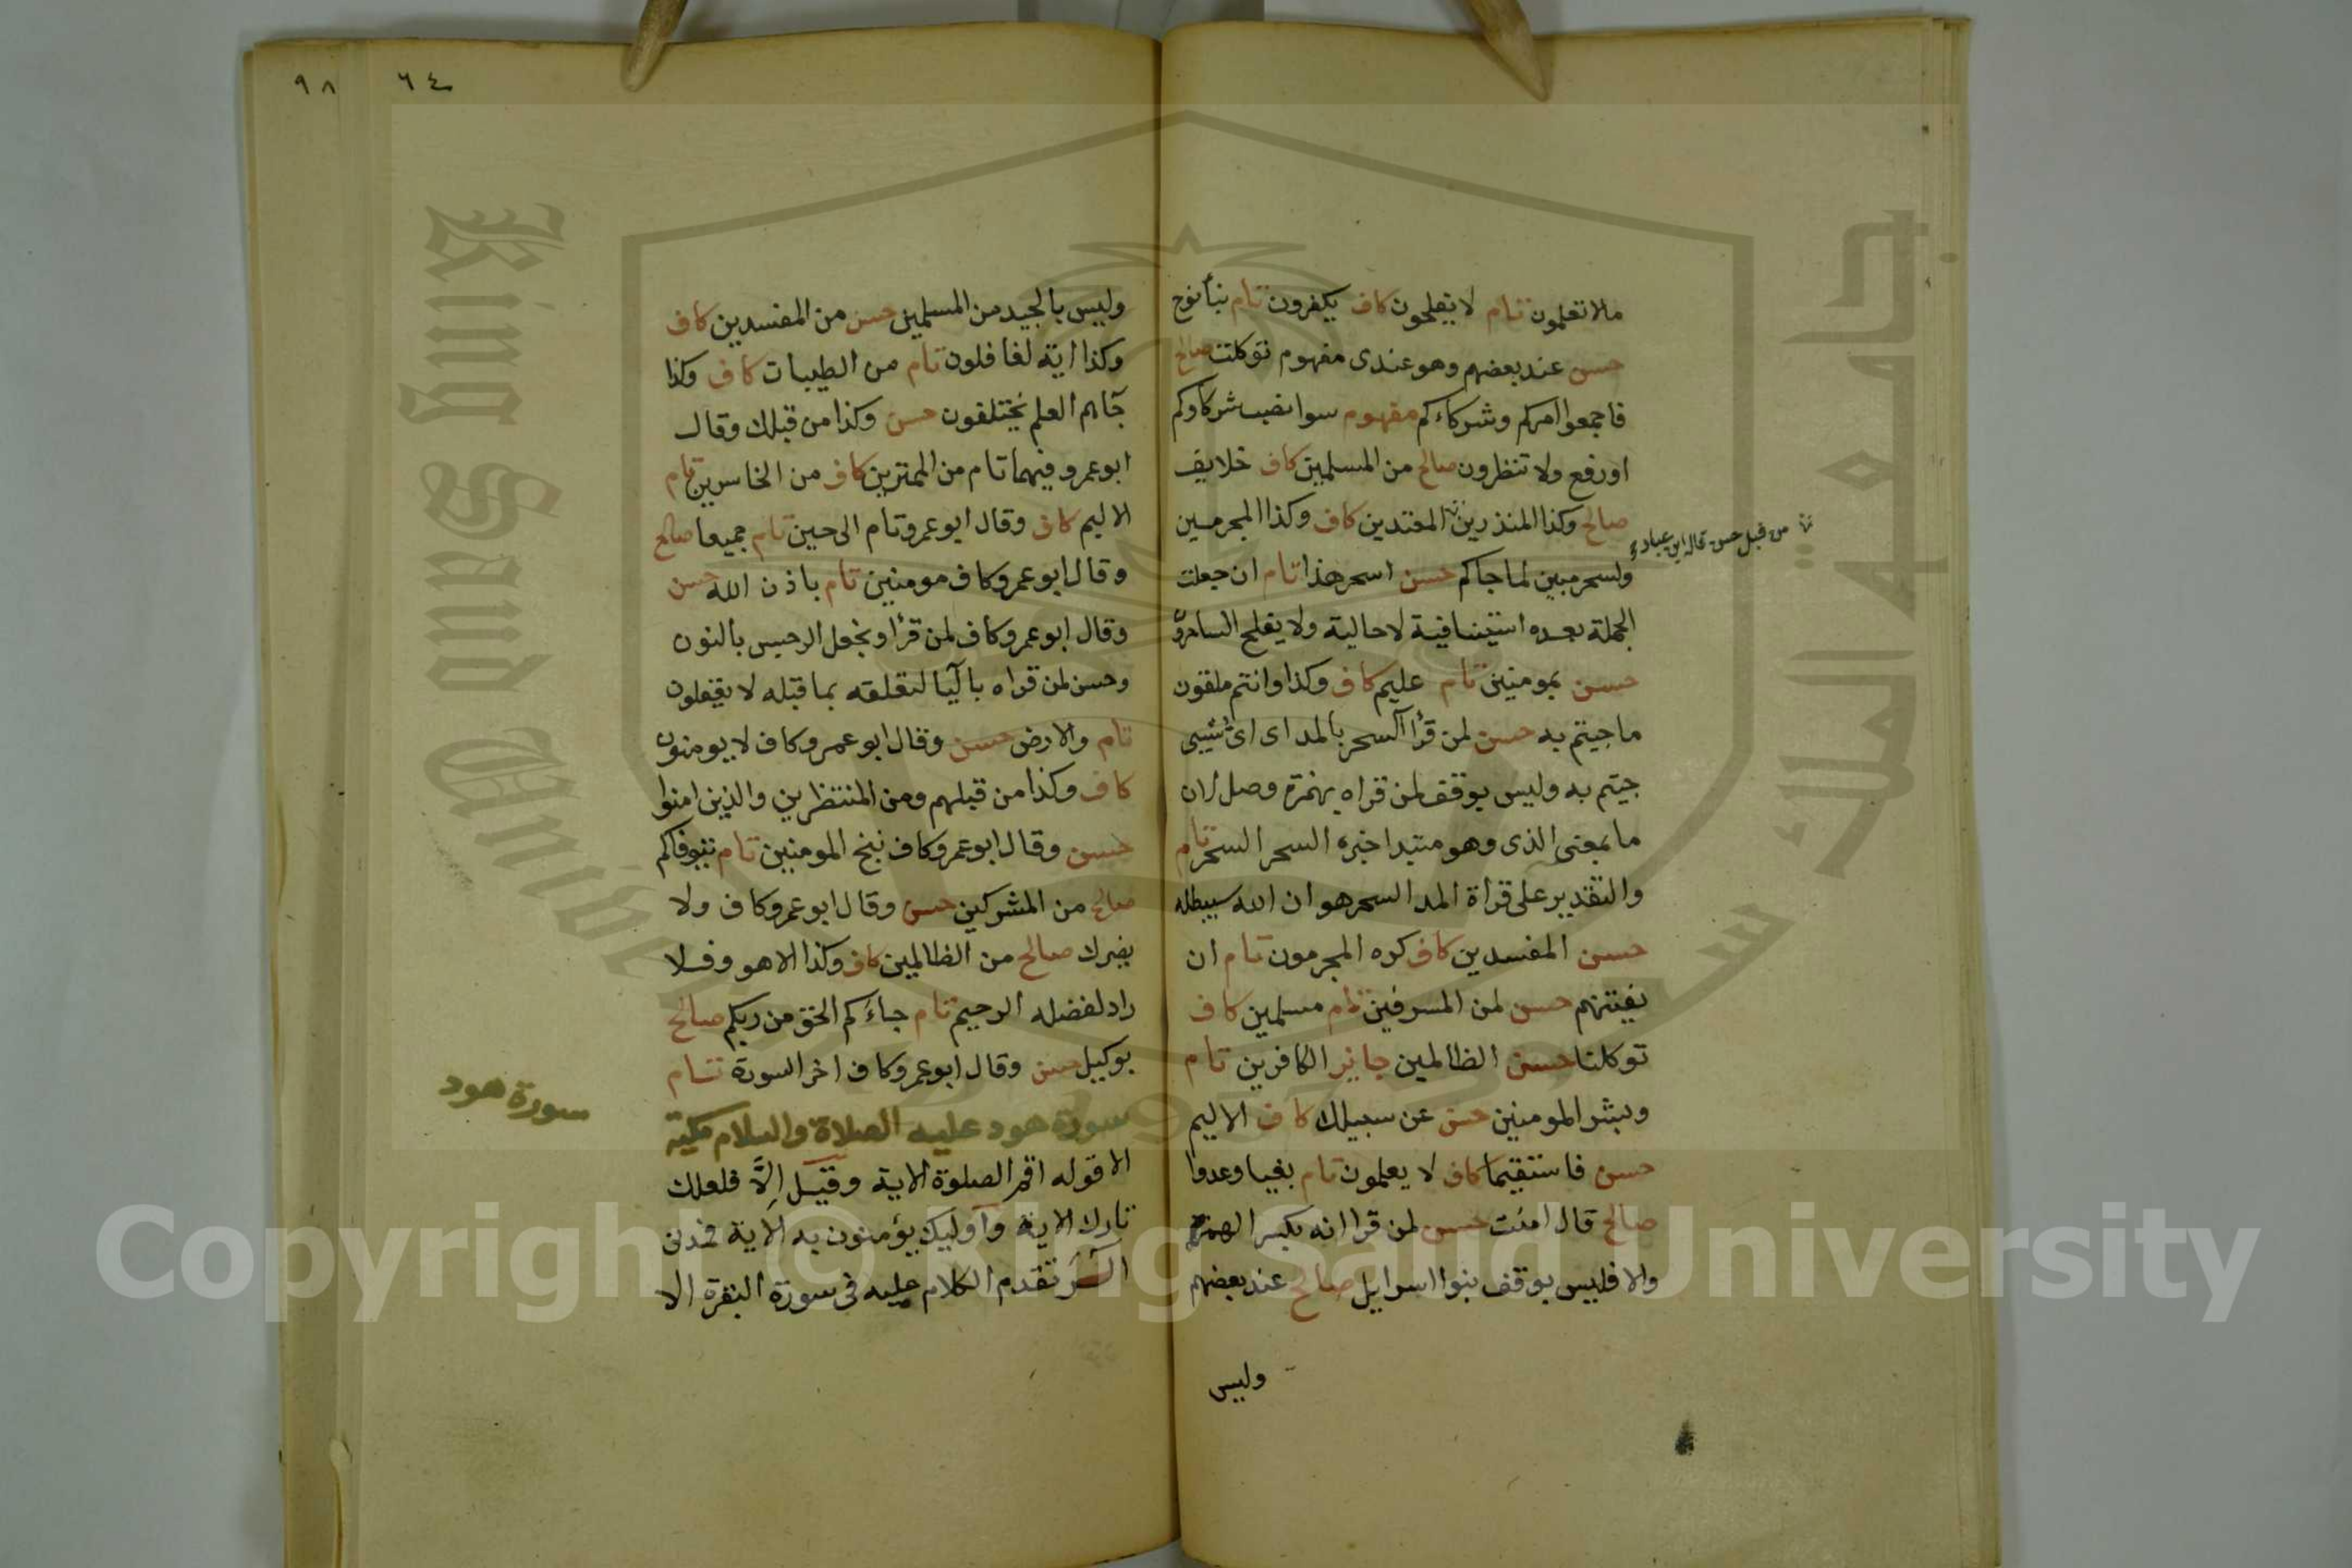 مالا تعلمون تام لا يفلحون كاف يكفرون تام نبأ نوح
حسن عند بعضهم وهو عندى مفهوم توكلت صالح
فاجمعوا امركم وشركاءكم مفهوم سوا نصب شركاوكم
او رفع ولا تنظرون صالح من المسلمين كاف خلايف
صالح وكذا المنذرين المعتدين كاف وكذا المجرمين
من قبل حسن قاله ابن عباد
ولسحر مبين لما جاكم حسن اسحر هذا تام ان جعلت
الجملة بعده استينافية لا حالية ولا يفلح الساحرون
حسن بمومنين تام عليم كاف وكذا وانتم ملقون
ما جيتم به حسن لمن قرأ آلسحر بالمد اى اى شيى
جيتم به وليس بوقف لمن قراه بهمزة وصل لان
ما بمعنى الذى وهو مبتدا خبره السحر السحر تام
والتقدير على قراة المد السحر هو ان الله سيبطله
حسن المفسدين كاف كره المجرمون تام ان
يفتنهم حسن لمن المسرفين تام مسلمين كاف
توكلنا حسن الظالمين جايز الكافرين تام
وبشر المومنين حسن عن سبيلك كاف الاليم
حسن فاستقيما كاف لا يعلمون تام بغيا وعدوا
صالح قال امنت حسن لمن قرا انه بكسر الهمزة
والا فليس بوقف بنوا اسرايل صالح عند بعضهم
وليس
٩٨ ٦٤
وليس بالجيد من المسلمين حسن من المفسدين كاف
وكذا اية لغافلون تام من الطيبات كاف وكذا
جآهم العلم يختلفون حسن وكذا من قبلك وقال
ابو عمرو فيهما تام من الممترين كاف من الخاسرين تام
الاليم كاف وقال ابو عمرو تام الى حين تام جميعا صالح
وقال ابو عمرو كاف مومنين تام باذن الله حسن
وقال ابو عمرو كاف لمن قرأ ونجعل الرجس بالنون
وحسن لمن قراه باليآ لتعلقه بما قبله لا يعقلون
تام والارض حسن وقال ابو عمرو كاف لا يومنون
كاف وكذا من قبلهم ومن المنتظرين والذين امنوا
حسن وقال ابو عمرو كاف ننج المومنين تام يتوفاكم
صالح من المشركين حسن وقال ابو عمرو كاف ولا
يضرك صالح من الظالمين كاف وكذا الا هو وفلا
راد لفضله الرحيم تام جاءكم الحق من ربكم صالح
بوكيل حسن وقال ابو عمرو كاف اخر السورة تام
سورة هود
سورة هود عليه الصلاة والسلام مكية
الا قوله اقم الصلوة الاية وقيل اِلَّا فلعلك
تارك الاية وأوليك يؤمنون به الاية
الٓر تقدم الكلام عليه فى سورة البقرة الا
King Saud University
جامعة الملك سعود
1957
Copyright © King Saud University